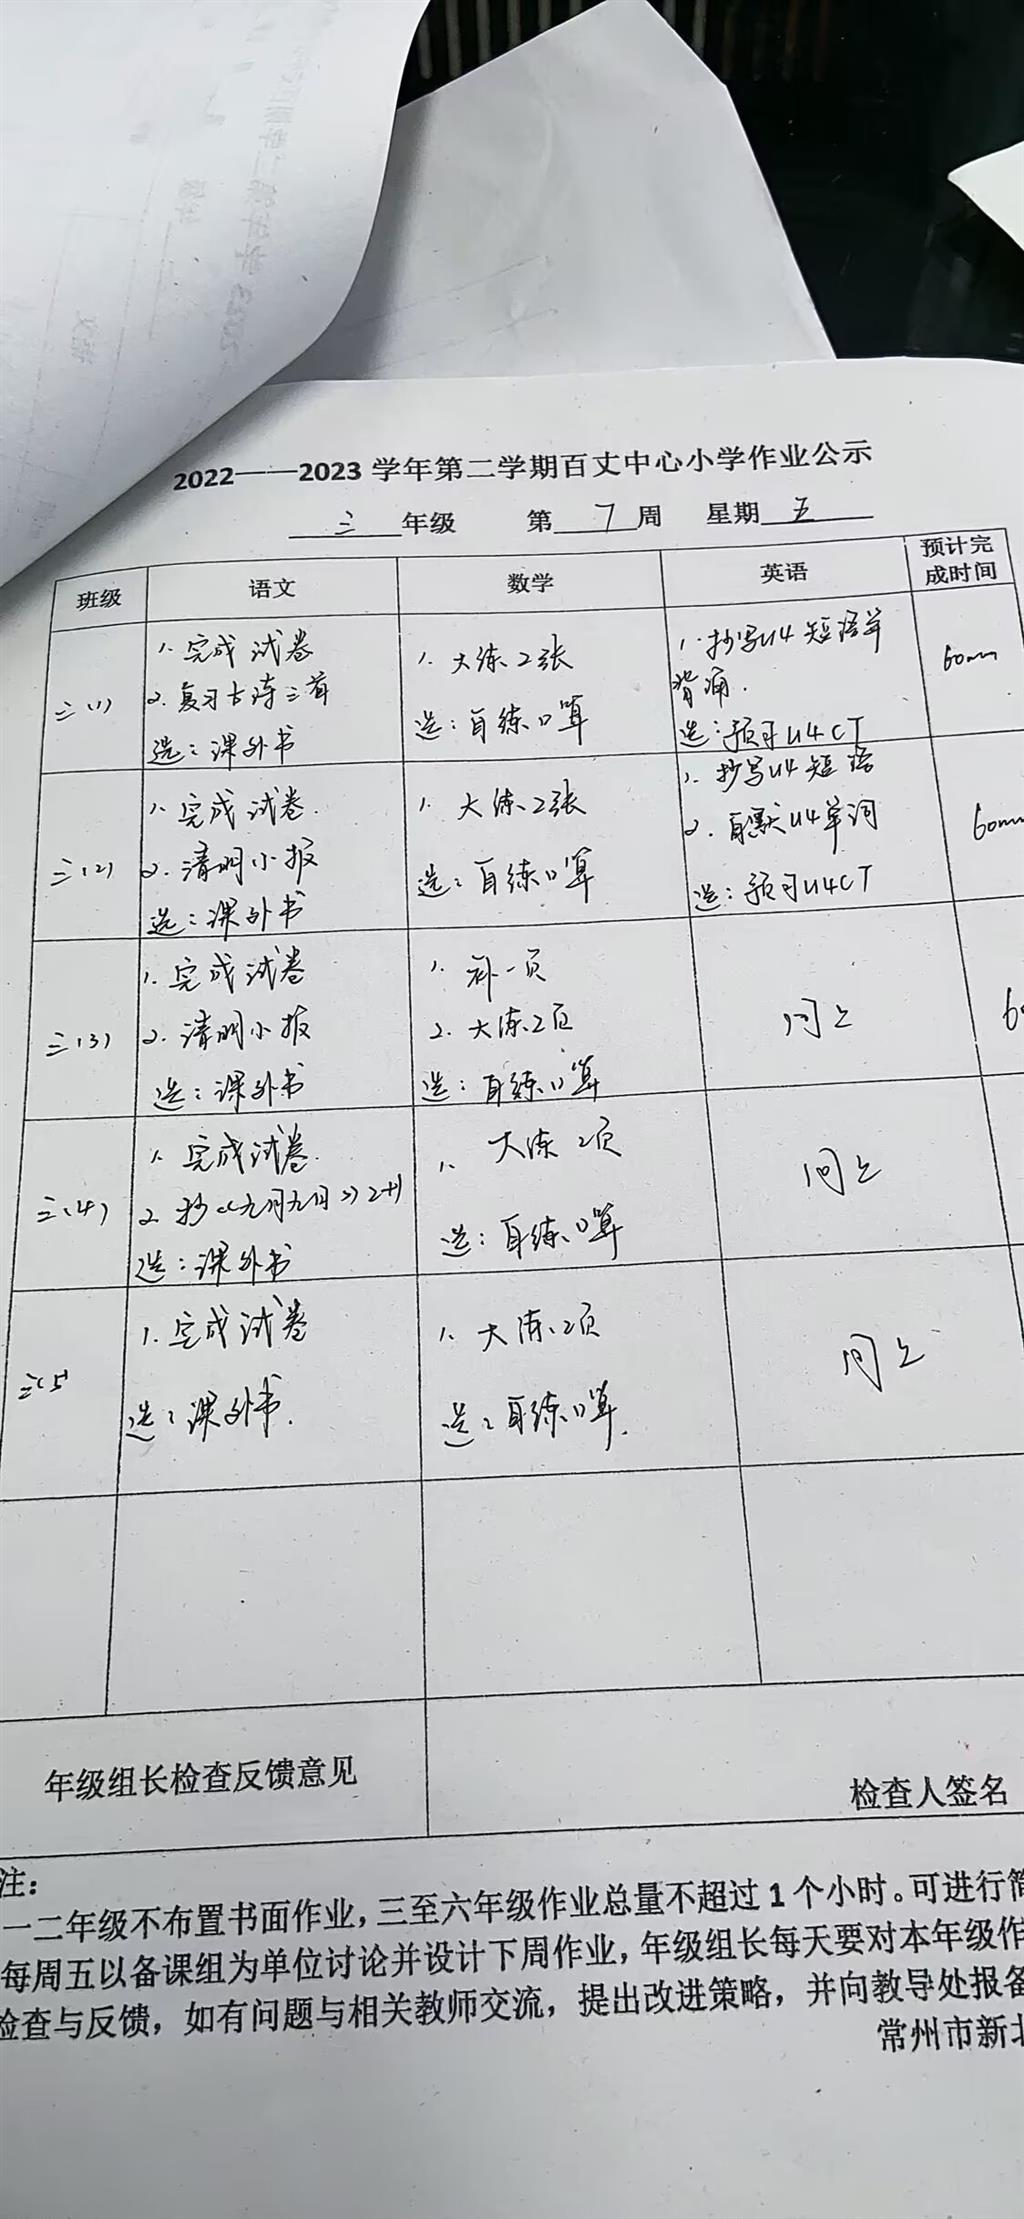 2022——2023 学年第二学期百丈中心小学作业公示
三 年级 第 7 周 星期 五
班级 语文 数学 英语 预计完成时间
三(1)
1. 完成试卷
2. 复习古诗三首
选：课外书
1. 大练2张
选：自练口算
1. 抄写U4短语并
背诵.
选：预习U4CT
60min
三(2)
1. 完成试卷.
2. 清明小报
选：课外书
1. 大练2张
选：自练口算
1. 抄写U4短语
2. 自默U4单词
选：预习U4CT
60min
三(3)
1. 完成试卷
2. 清明小报
选：课外书
1. 补一页
2. 大练2页
选：自练口算
同上
三(4)
1. 完成试卷.
2. 抄《九月九日》2
选：课外书
1. 大练2页
选：自练口算
同上
三(5)
1. 完成试卷
选：课外书.
1. 大练2页
选：自练口算.
同上
年级组长检查反馈意见
检查人签名
注：
一二年级不布置书面作业，三至六年级作业总量不超过 1 个小时。可进行
每周五以备课组为单位讨论并设计下周作业，年级组长每天要对本年级作
检查与反馈，如有问题与相关教师交流，提出改进策略，并向教导处报备
常州市新北